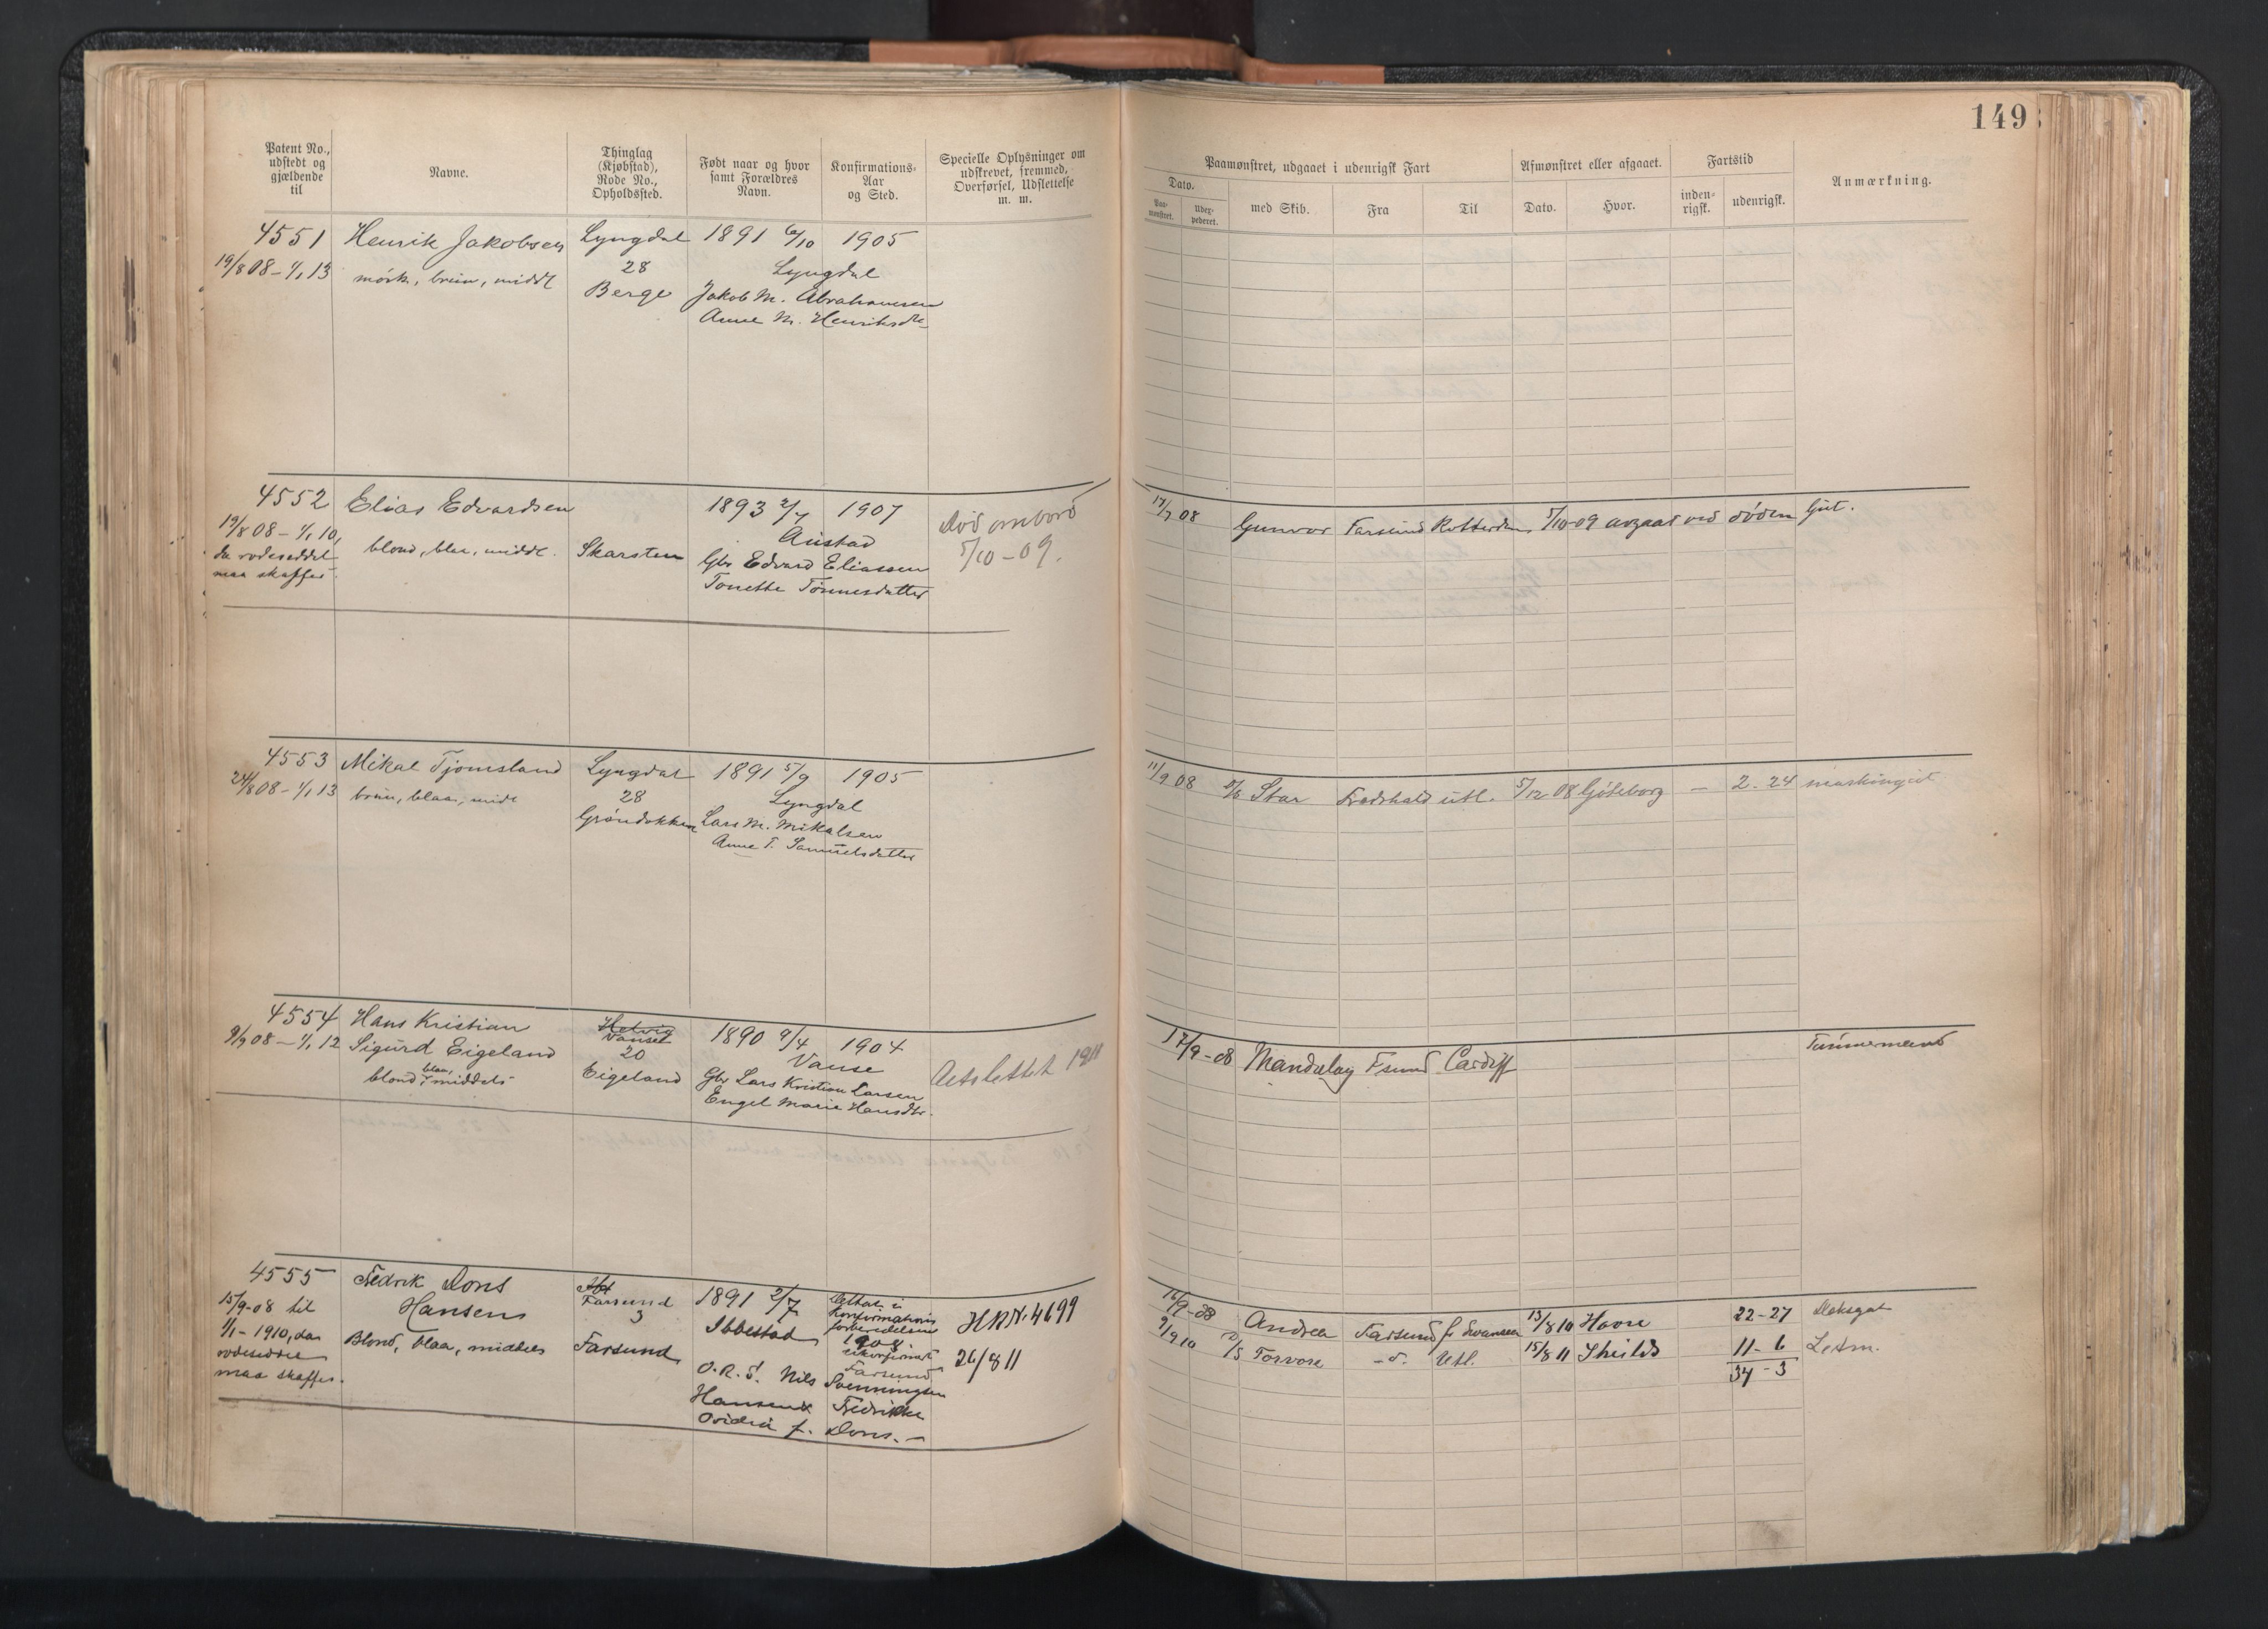 149
Patent No., udstedt og gjældende til
Navne.
Thinglag (Kjøbstad), Rode No., Opholdssted.
Født naar og hvor samt Forældres Navn.
Konfirmations-Aar og Sted.
Specielle Oplysninger om udskrevet, fremmed, Overførsel, Udslettelse m. m.
Paamønstret, udgaaet i udenrigsk Fart
Dato.
Paa-mønstret.
Uder-pederet.
med Skib.
Fra
Til
Afmønstret eller afgaaet.
Dato.
Hvor.
Fartstid
inden-rigsk.
udenrigsk.
Anmærkning.
4551 Henrik Jakobsen Lyngdal 1891 6/10 1905
19/8 08 – 1/1 13 mörk, brun, middl 28 Lyngdal
Berge Jakob M. Abrahamsen
Anne M. Henriksdtr
4552 Elias Edvardsen 1893 2/7 1907 Död ombord
19/8 08 – 1/1 10, blond, blaa, middl. Skarstein Austad 5/10 – 09.
da rodeseddel Gbr Edvard Eliassen
maa skaffes. Tonette Tönnesdatter
17/9 08 Gunvor Farsund Rotterdam 5/10-09 avgaat ved döden Gut.
4553 Mikal Tjomsland Lyngdal 1891 5/9 1905
24/8 08 – 1/1 13 brun, blaa, midl 28 Lyngdal
Gröndokken Lars M. Mikalsen
Anne T. Samuelsdatter
11/9 08 Star Fredrhald utl. 5/12 08 Göteborg — 2. 24 maskingut
4554 Hans Kristian Vanse 1890 9/4 1904
9/9 08 – 1/1 12 Sigurd Eigeland 20 Vanse
blond, blaa, middels Eigeland Gbr Lars Kristian Larsen
Engel Marie Hansdtr. 1911
17/9-08 Mandalay Fsund Cardiff Tömmermand
4555 Fedrik Dons Farsund 1891 2/7
Hansen 3 Ibbestad
15/9-08 til
1/1 – 1910, da Blond, blaa, middels Farsund
rodeseddel
maa skaffes.
Deltat i konfirmations forberedelsen 1908
Farsund
O.R.S. Nils Svenningsen
Hansen & Fredrikke
Ovidia f. Dons. –
HRN. 4699
26/8 11
16/9-08 Andrea Farsund Swansea 13/8 10 Havre 22-27 Deksgut
9/9 10 Torvore -d- Utl. 15/8 11 Shields 11-6 Letm.
34-3